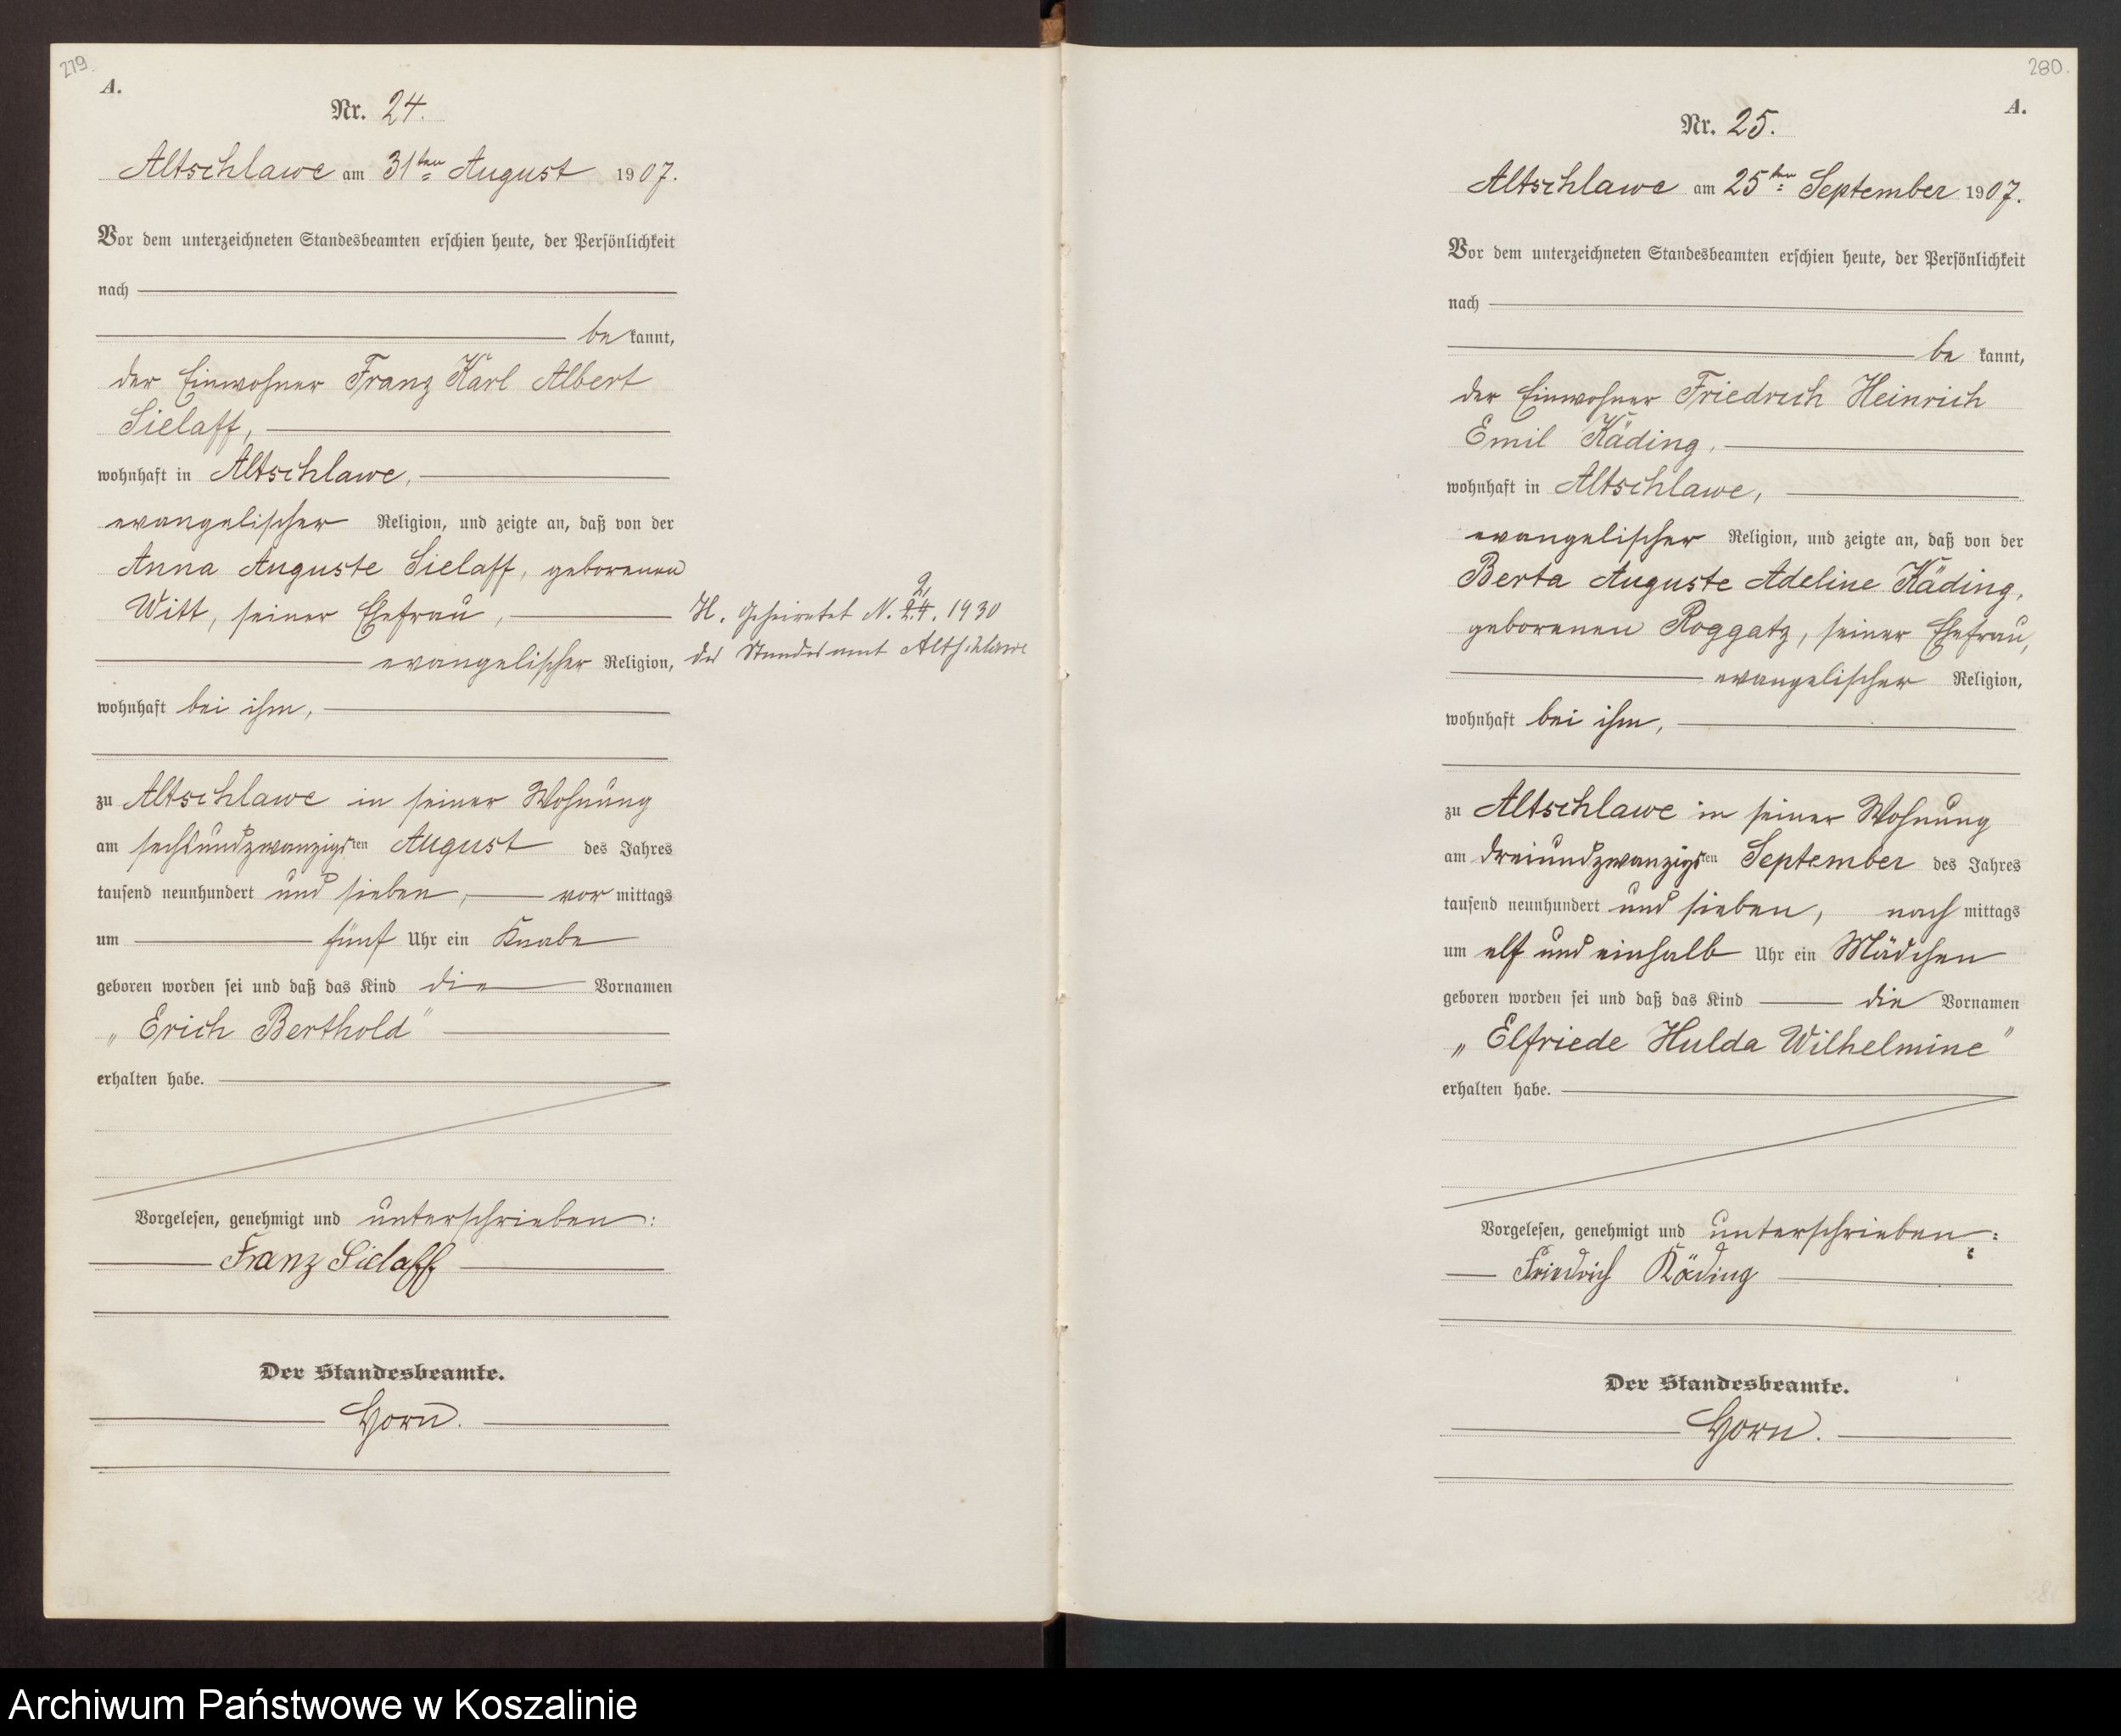 279.
A.
Nr. 24.
Altschlawe am 31ten August 1907.
Vor dem unterzeichneten Standesbeamten erschien heute, der Persönlichkeit
nach
be kannt,
der Einwohner Franz Karl Albert
Sielaff,
wohnhaft in Altschlawe,
evangelischer Religion, und zeigte an, daß von der
Anna Auguste Sielaff, geborenen
Witt, seiner Ehefrau,
evangelischer Religion,
wohnhaft bei ihm,
zu Altschlawe in seiner Wohnung
am sechsundzwanzigsten August des Jahres
tausend neunhundert und sieben, vor mittags
um fünf Uhr ein Knabe
geboren worden sei und daß das Kind die Vornamen
„Erich Berthold"
erhalten habe.
Vorgelesen, genehmigt und unterschrieben:
Franz Sielaff
Der Standesbeamte.
Horn.
2
H. Geheiratet N. 24. 1930
des Standesamt Altschlawe
280.
A.
Nr. 25.
Altschlawe am 25ten September 1907.
Vor dem unterzeichneten Standesbeamten erschien heute, der Persönlichkeit
nach
be kannt,
der Einwohner Friedrich Heinrich
Emil Käding,
wohnhaft in Altschlawe,
evangelischer Religion, und zeigte an, daß von der
Berta Auguste Adeline Käding,
geborenen Roggatz, seiner Ehefrau,
evangelischer Religion,
wohnhaft bei ihm,
zu Altschlawe in seiner Wohnung
am dreiundzwanzigsten September des Jahres
tausend neunhundert und sieben, nach mittags
um elf und einhalb Uhr ein Mädchen
geboren worden sei und daß das Kind die Vornamen
„Elfriede Hulda Wilhelmine"
erhalten habe.
Vorgelesen, genehmigt und unterschrieben:
Friedrich Käding
Der Standesbeamte.
Horn.
Archiwum Państwowe w Koszalinie